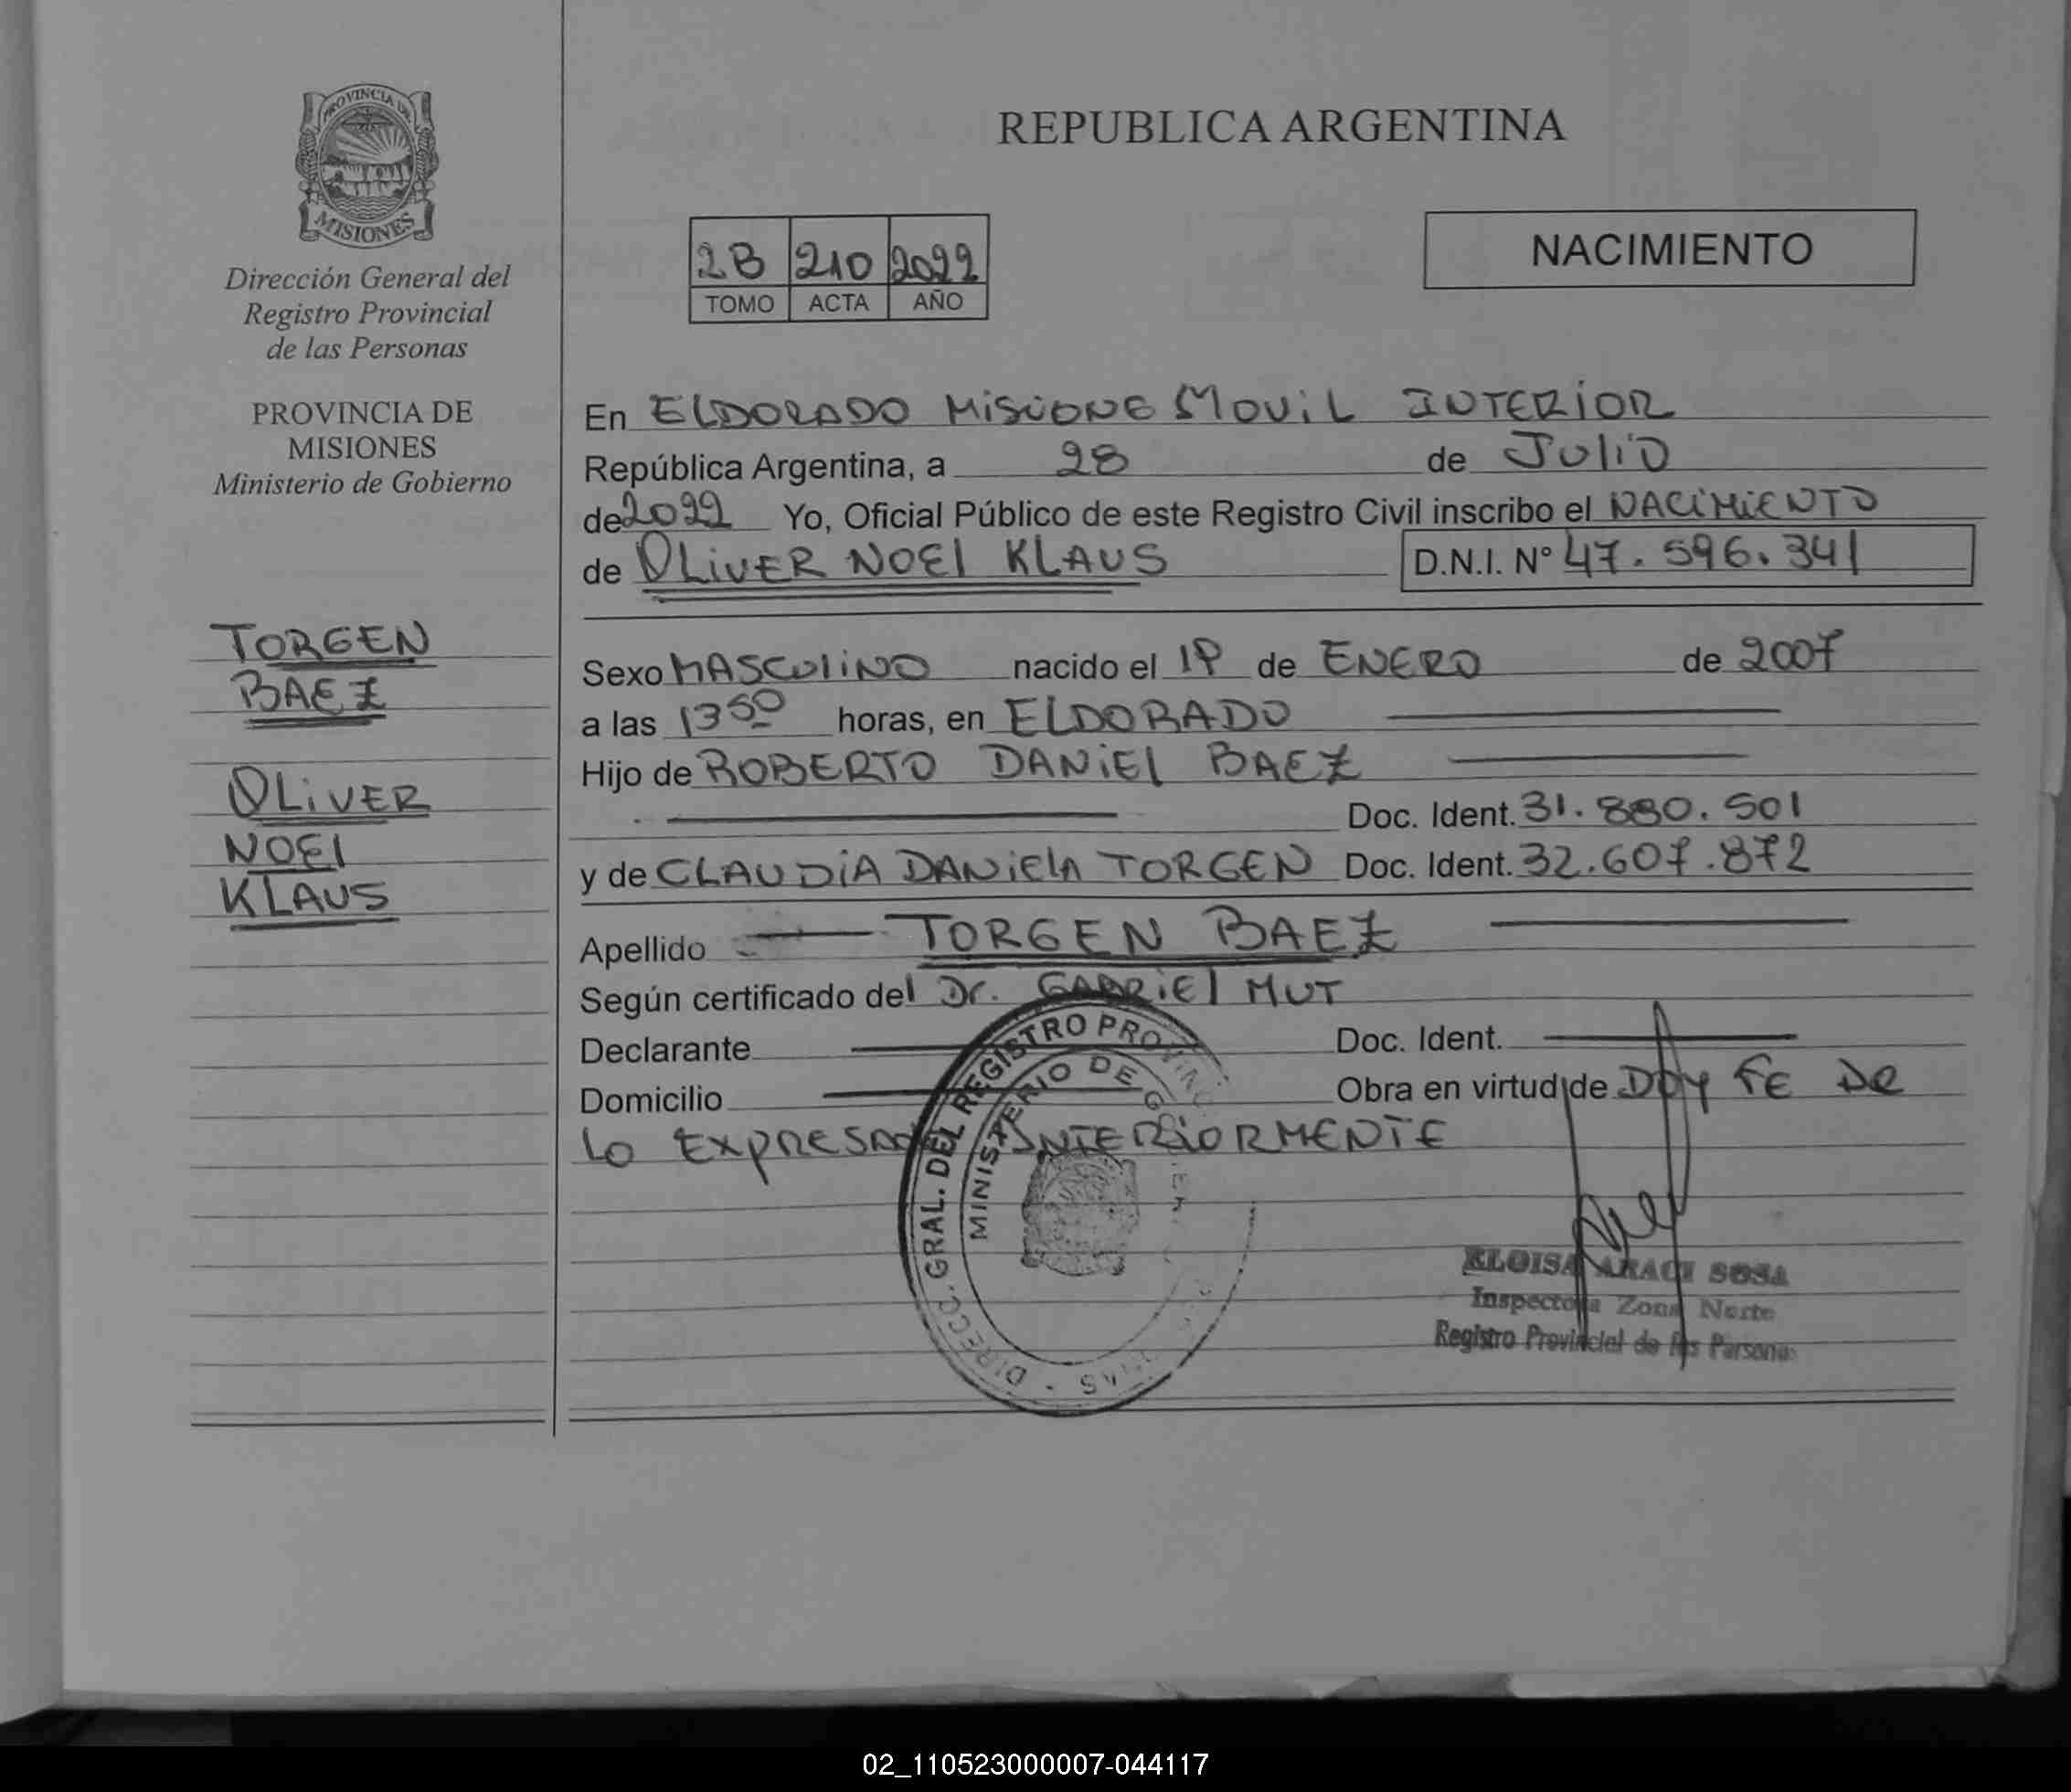 PROVINCIA DE
MISIONES
Dirección General del
Registro Provincial
de las Personas
PROVINCIA DE
MISIONES
Ministerio de Gobierno
TORGEN
BAEZ
OLIVER
NOEl
KLAUS
REPUBLICA ARGENTINA
2B 210 2022
TOMO ACTA AÑO
NACIMIENTO
En ELDORADO MISIONE MOVIL INTERIOR
República Argentina, a 28 de JULIO
de 2022 Yo, Oficial Público de este Registro Civil inscribo el NACIMIENTO
de OLIVER NOEl KLAUS D.N.I. Nº 47.596.341
Sexo MASCULINO nacido el de ENERO de 2007
a las 13 50 horas, en ELDORADO
Hijo de ROBERTO DANIEL BAEZ
Doc. Ident. 31.880.501
y de CLAUDIA DANIELA TORGEN Doc. Ident. 32.607.872
Apellido TORGEN BAEZ
Según certificado del Dr. GABRIEL MUT
Declarante Doc. Ident.
Domicilio Obra en virtud de DOY FE DE
LO EXPRESADO ANTERIORMENTE
DIRECC. GRAL. DEL REGISTRO PROVINC
MINISTERIO DE
ELOISA ARACI SOSA
Inspectora Zona Norte
Registro Provincial de las Personas
02_110523000007-044117